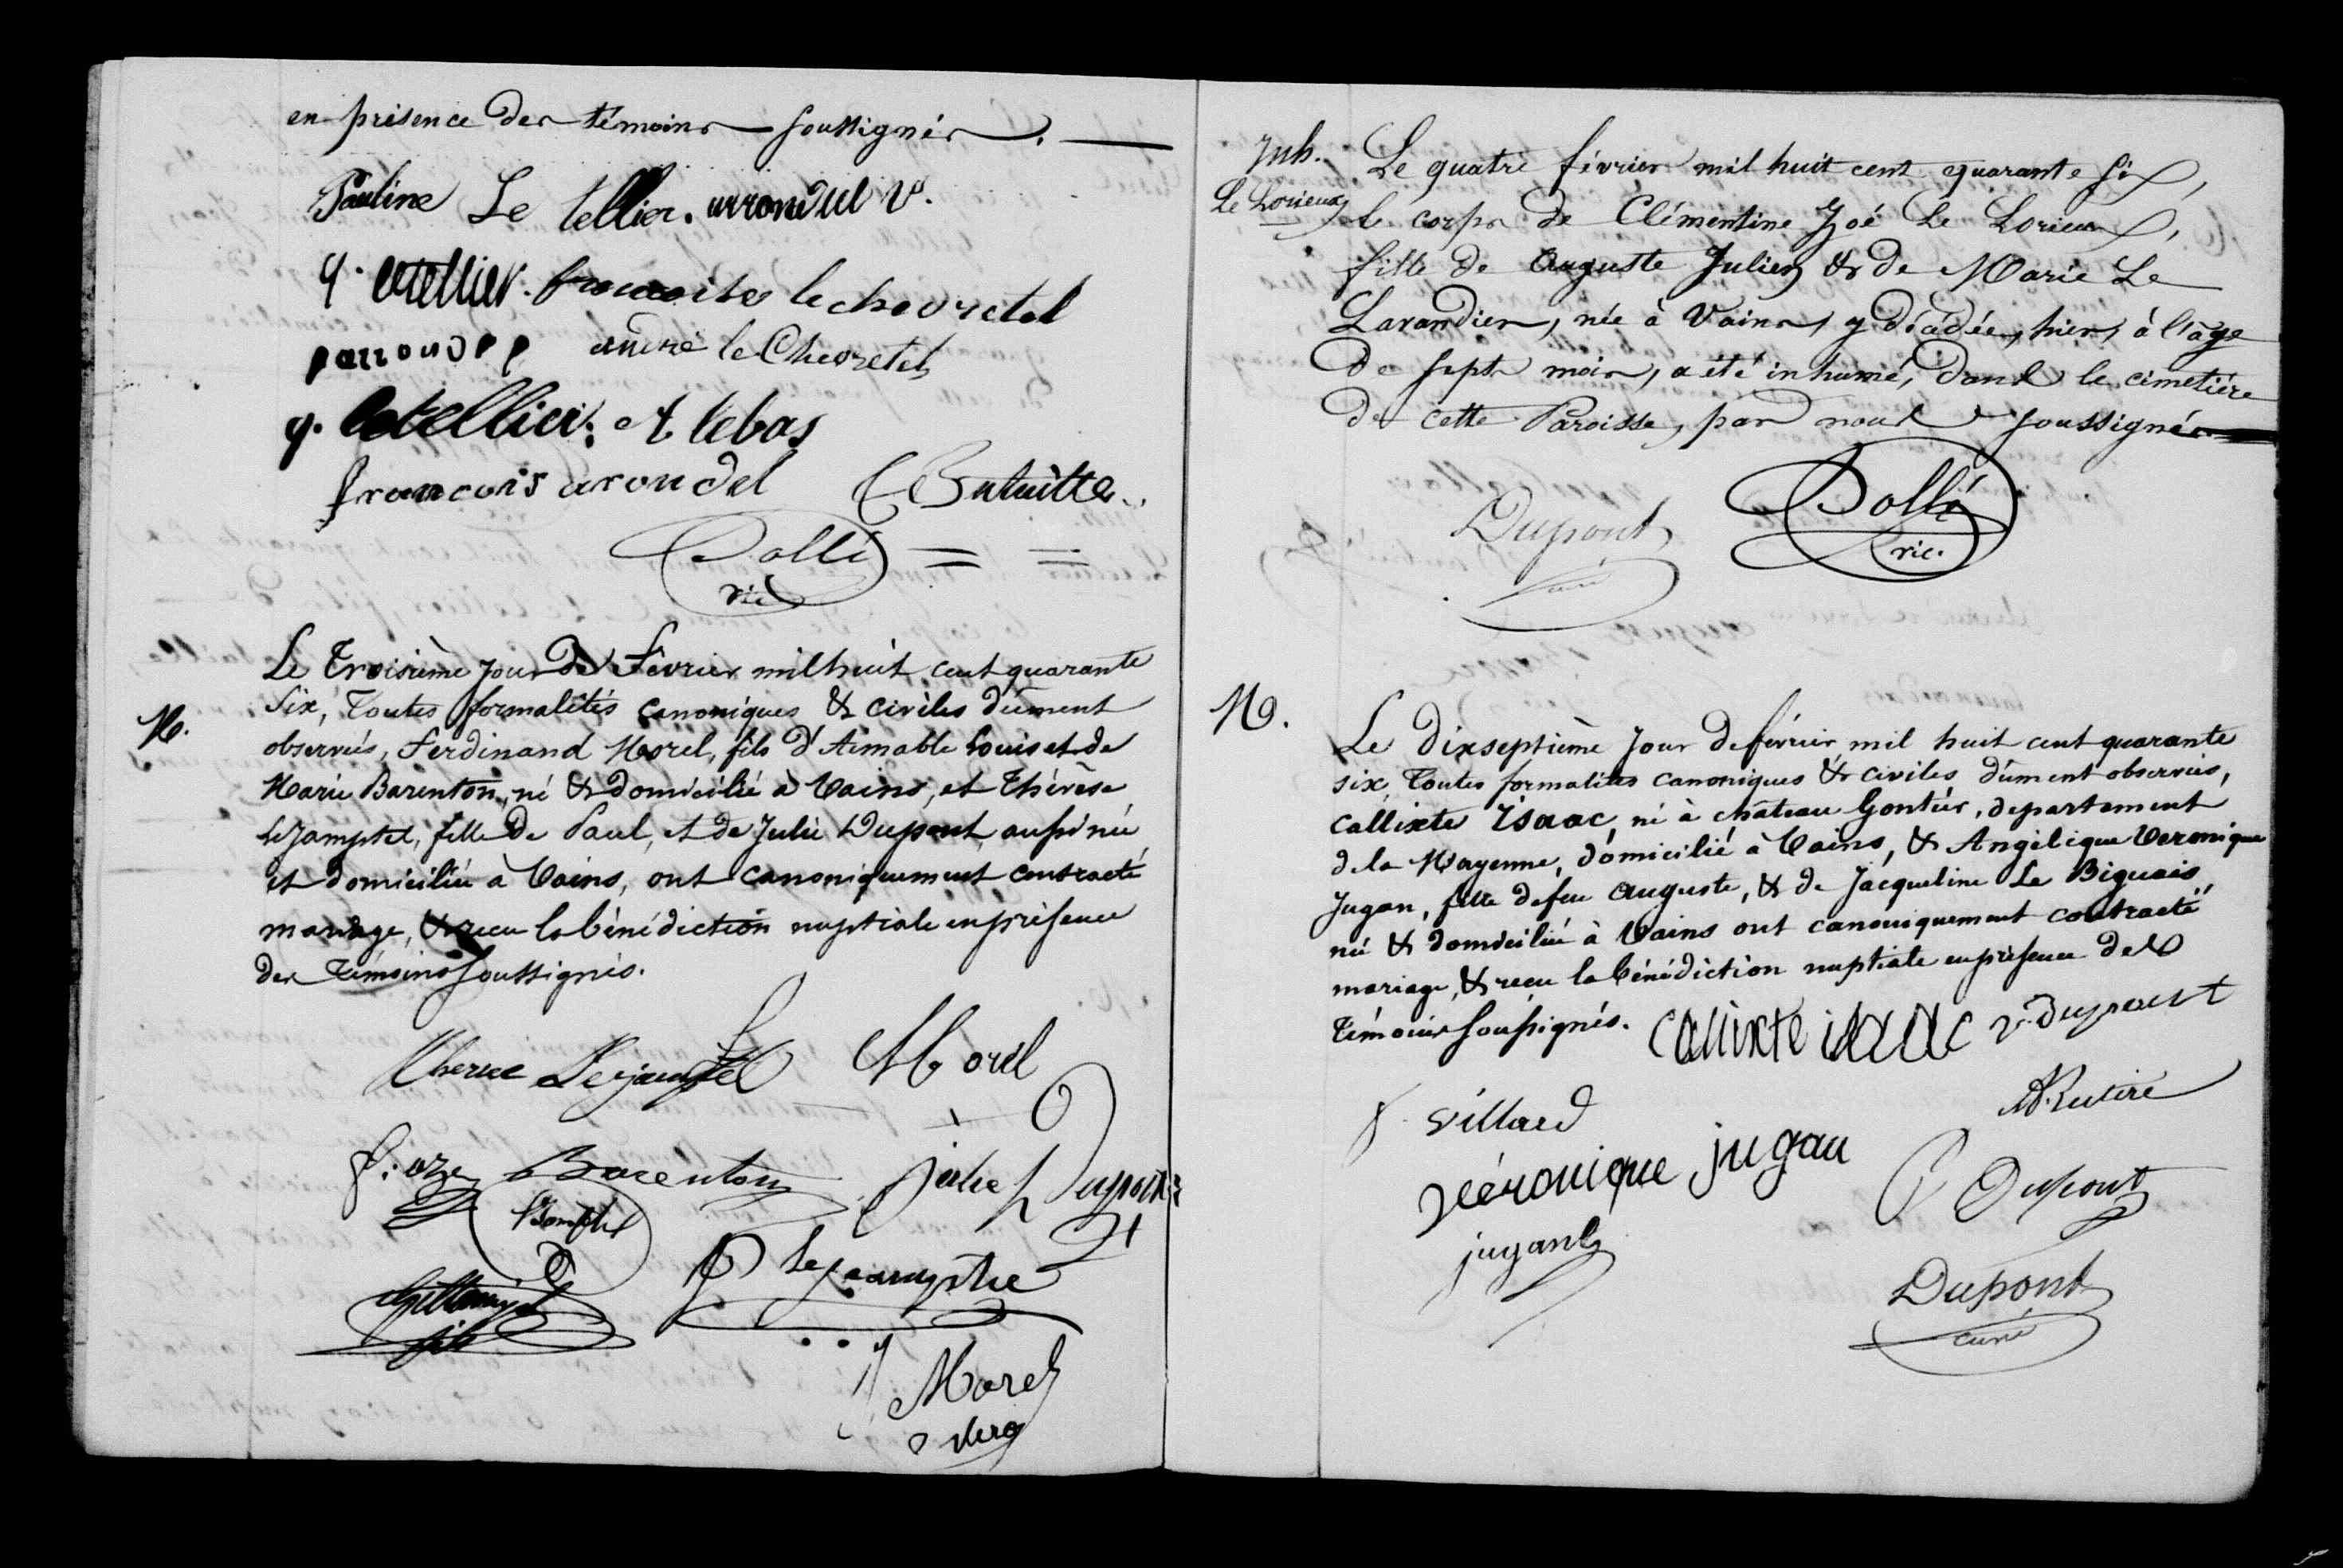 en présence des témoins soussignés.
Pauline Le tellier. arrondel v.
letellier. francoise le chevretel
andré le Chevretel
g. letellier. A lebas
francois arondel
Dolley
vic
M.
Le Troisième jour de Février mil huit cent quarante
six, Toutes formalités canoniques & civiles dûment
observées, Ferdinand Morel, fils d'Aimable Louis et de
Marie Barenton, né & domicilié à Vains, et Thérèse
Lejamptel, fille de Paul, et de Julie Dupont, aussi née
et domiciliée à Vains, ont canoniquement contracté
mariage, & reçu la bénédiction nuptiale en présence
des Témoins soussignés.
Therese Lejamptel Morel
Barenton julie Dupont
lejamptel
Morel
Inh.
Le Lorieux
Le quatre février mil huit cent quarante six,
le corps de Clémentine Zoé Le Lorieux,
fille de Auguste Julien & de Marie Le
Lavandier, née à Vains, y décédée, hier, à l'âge
de sept mois, a été inhumé, dans le cimetière
de cette Paroisse, par nous soussignés
Dupont
curé
Dolley
vic.
M.
Le dixseptième jour de février mil huit cent quarante
six, Toutes formalités canoniques & civiles dûment observées,
Callixte Isaac, né à château Gontier, departement
de la Mayenne, domicilié à Vains, & Angélique Veronique
Jugan, fille de feu Auguste, & de Jacqueline Le Biguais,
née & domiciliée à Vains ont canoniquement contracté
mariage, & reçu la bénédiction nuptiale en présence des
Témoins soussignés. Callixte isaac
villard
véronique jugan
Dupont
jugant
Dupont
curé